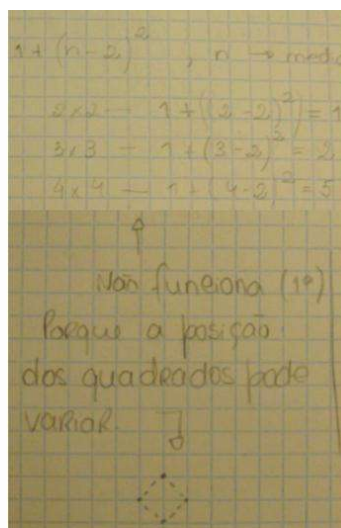 1 + (n - 2)² , n → medid
2x2 — 1 + ((2-2)²) = 1
3x3 — 1 + (3-2)² = 2
4x4 — 1 + (4-2)² = 5
Não funciona (1º)
Porque a posição
dos quadrados pode
variar.